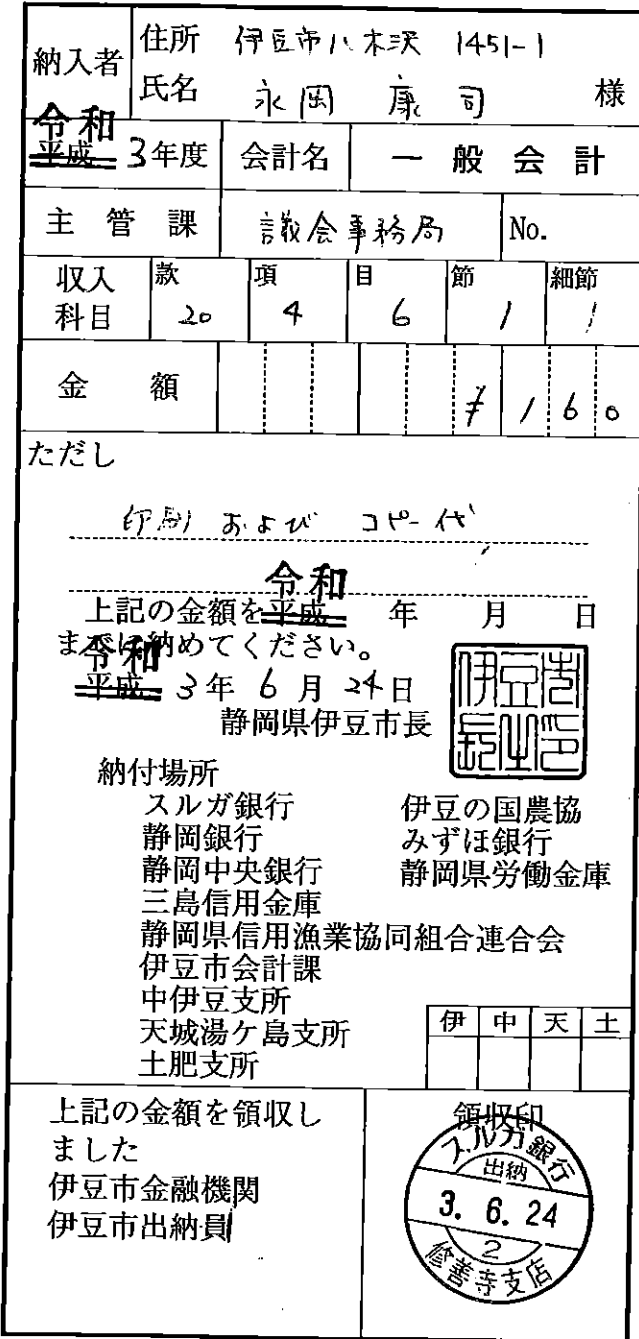 納入者
住所 伊豆市八木沢 1451-1
氏名 永岡 康司 様
令和
平成 3年度 会計名 一般会計
主管課 議会事務局 No.
収入科目 款 20 項 4 目 6 節 1 細節 1
金額 ¥160
ただし
印刷 および コピー代
令和
上記の金額を平成 年 月 日
までに納めてください。
令和
平成 3年 6月 24日
静岡県伊豆市長
伊豆市長之印
納付場所
スルガ銀行 伊豆の国農協
静岡銀行 みずほ銀行
静岡中央銀行 静岡県労働金庫
三島信用金庫
静岡県信用漁業協同組合連合会
伊豆市会計課
中伊豆支所
天城湯ケ島支所
土肥支所
伊 中 天 土
上記の金額を領収し
ました
伊豆市金融機関
伊豆市出納員
領収印
スルガ銀行
出納
3. 6. 24
2
修善寺支店